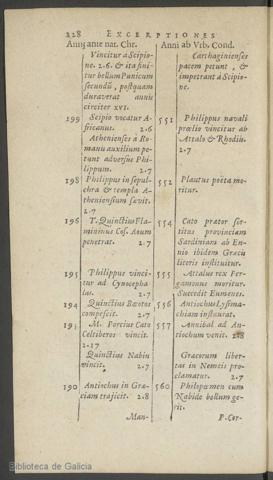 228 EXCERPTIONES
Anni ante nat. Chr.
Vincitur à Scipione. 2.6. & ita finitur
bellum Punicum
secundũ, postquam
duraverat annis
circiter XVI.
199 Scipio vocatur Africanus. 2.6
Athenienses à Romanis
auxilium petunt
adversus Philippum. 2.7
198 Philippus in sepulchra
& templa Atheniensium
sævit.
2.7
196 T. Quinctius Flamininus
Cos. Aoum
penetrat. 2.7
195 Philippus vincitur
ad Cynocephalas. 2.7
194 Quinctius Bœotos
compescit. 2.7
19 M. Porcius Cato
Celtiberos vincit.
2.17
Quinctius Nabin
vincit. 2.7
190 Antiochus in Græciam
trajicit. 2.8
Man-
Anni ab Vrb. Cond.
Carthaginienses
pacem petunt, &
impetrant à Scipione.
551 Philippus navali
prælio vincitur ab
Attalo & Rhodiis.
2.7
552 Plautus poëta moritur.
554 Cato prator sortitus
provinciam
Sardiniam ab Ennio
ibidem Græcis
literis instituitur.
555 Attalus rex Pergamenus
moritur.
Succedit Eumenes.
556 Antiochus Lysimachiam
instaurat.
557 Annibal ad Antiochum
venit. 2.8
Græcorum libertas
in Nemeis proclamatur. 2.7
560 Philopœmen cum
Nabide bellum gerit.
P. Cor-
Biblioteca de Galicia